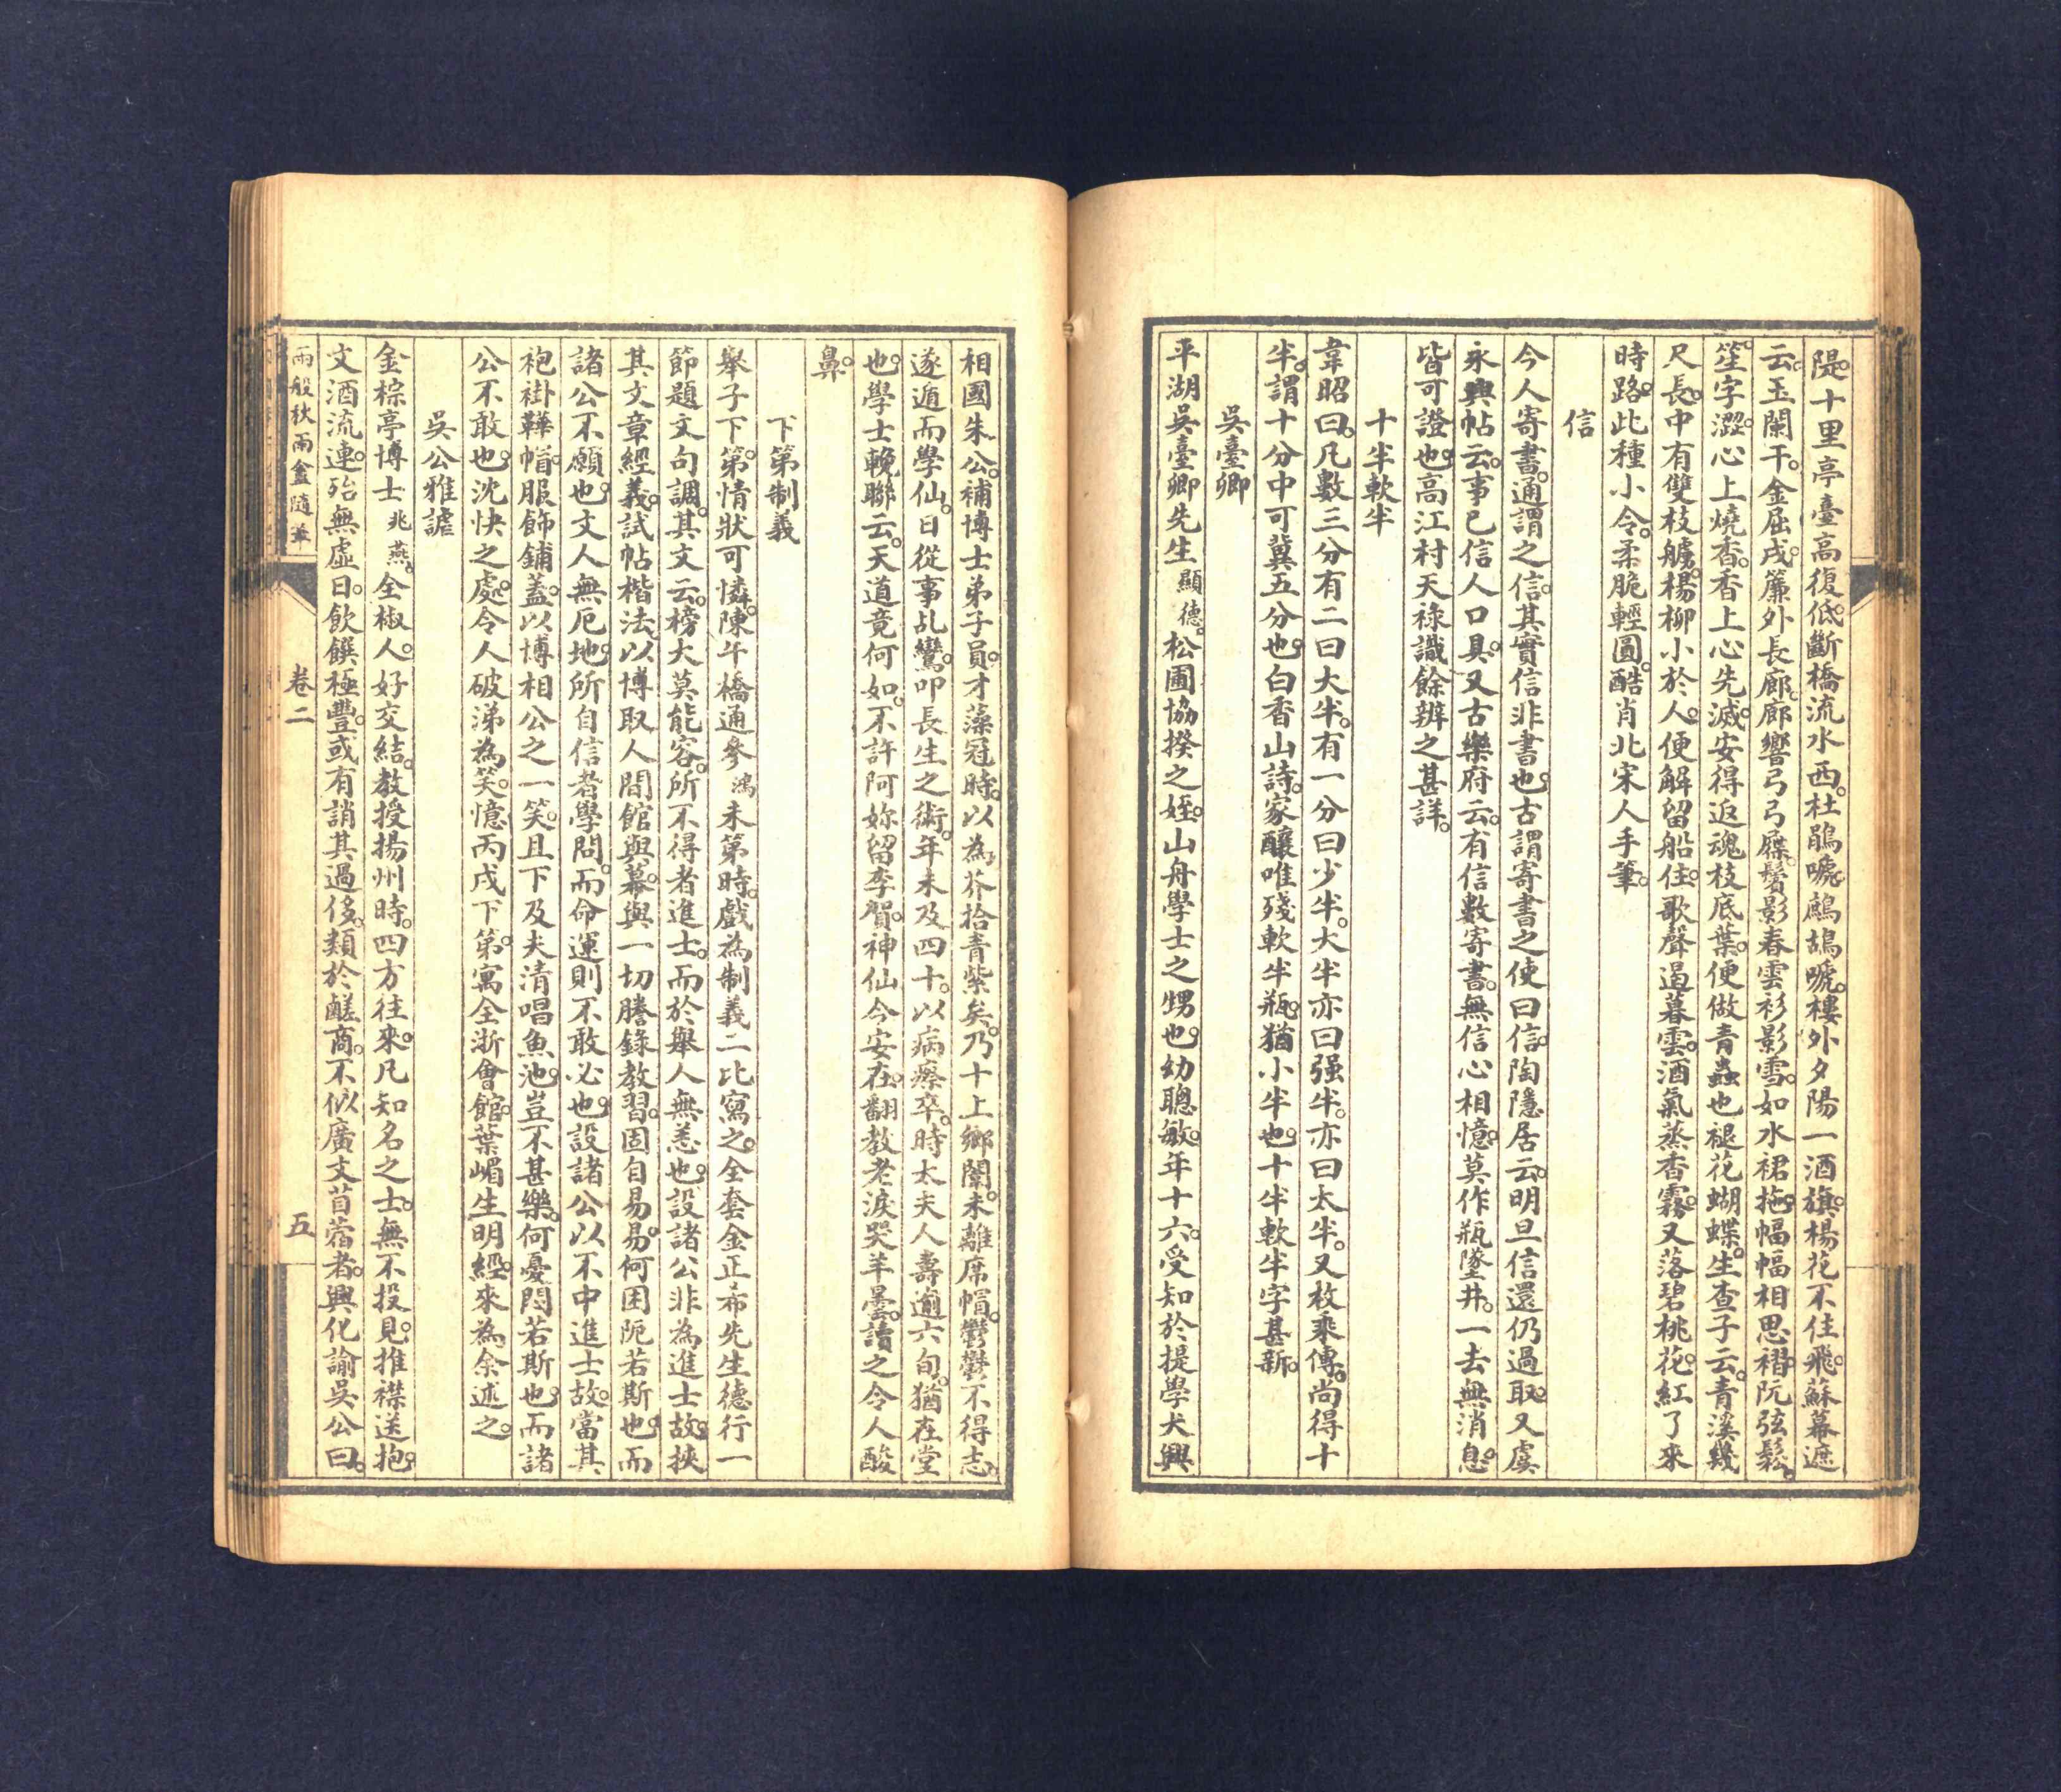 隄。十里亭臺高復低。斷橋流水西。杜鵑嗁。鷓鴣嗁。樓外夕陽一酒旗。楊花不住飛。蘇幕遮
云。玉闌干。金屈戌。簾外長廊。廊響弓弓屧。鬢影春雲衫影雪。如水裙拖。幅幅相思褶。阮弦鬆。
笙字澀。心上燒香。香上心先滅。安得返魂枝底葉。便做青蟲。也褪花蝴蝶。生查子云。青溪幾
尺長。中有雙枝艣。楊柳小於人。便解留船住。歌聲遏暮雲。酒氣蒸香霧。又落碧桃花。紅了來
時路。此種小令。柔脆輕圓。酷肖北宋人手筆。
信
今人寄書。通謂之信。其實信非書也。古謂寄書之使曰信。陶隱居云。明旦信還仍過取。又虞
永興帖云。事已信人口具。又古樂府云。有信數寄書。無信心相憶。莫作瓶墜井。一去無消息。
皆可證也。高江村天祿識餘辨之甚詳。
十半軟半
韋昭曰。凡數三分有二曰大半。有一分曰少半。大半亦曰强半。亦曰太半。又枚乘傳。尚得十
半。謂十分中可冀五分也。白香山詩。家釀唯殘軟半瓶。猶小半也。十半軟半字甚新。
吳臺卿
平湖吳臺卿先生顯德。松圃協揆之姪。山舟學士之甥也。幼聰敏。年十六。受知於提學大興
相國朱公。補博士弟子員。才藻冠時。以為芥拾青紫矣。乃十上鄉闈。未離席帽。鬱鬱不得志。
遂遁而學仙。日從事乩鸞。叩長生之術。年未及四十。以病瘵卒。時太夫人壽逾六旬。猶在堂
也。學士輓聯云。天道竟何如。不許阿㜷留李賀。神仙今安在。翻教老淚哭羊曇。讀之令人酸
鼻。
下第制義
舉子下第。情狀可憐。陳午橋通參鴻未第時。戲為制義二比寫之。全套金正希先生德行一
節題文句調。其文云。榜大莫能容。所不得者進士。而於舉人無恙也。設諸公非為進士故。挾
其文章經義。試帖楷法。以博取人間館與幕。與一切謄錄教習。固自易易。何困阨若斯也。而
諸公不願也。文人無厄地。所自信者學問。而命運則不敢必也。設諸公以不中進士故。當其
袍褂鞾帽。服飾鋪蓋。以博相公之一笑。且下及夫清唱魚池。豈不甚樂。何憂悶若斯也。而諸
公不敢也。沈快之處。令人破涕為笑。憶丙戌下第。寓全浙會館。葉嵋生明經。來為余述之。
吳公雅謔
金棕亭博士兆燕。全椒人。好交結。教授揚州時。四方往來。凡知名之士。無不投見。推襟送抱。
文酒流連。殆無虛日。飲饌極豐。或有誚其過侈。類於鹺商。不似廣文苜蓿者。興化諭吳公曰。
兩般秋雨盦隨筆
卷二
五